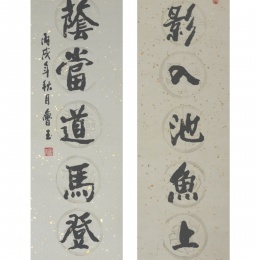 影入池魚上
蔭當道馬登
丙戌年秋月魯玉